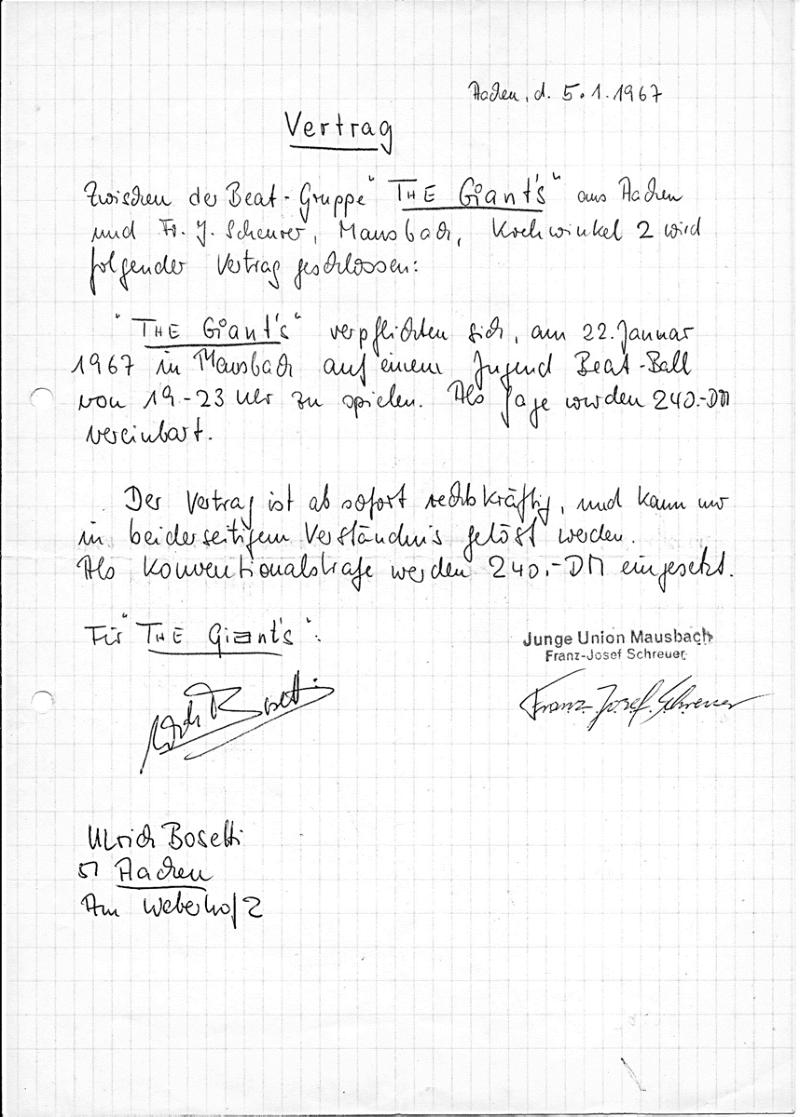 Aachen, d. 5.1.1967
Vertrag
Zwischen der Beat-Gruppe "THE Giant's" aus Aachen
und Fr. J. Scheurer, Mausbach, Kochwinkel 2 wird
folgender Vertrag geschlossen:
"THE Giant's" verpflichten sich, am 22. Januar
1967 in Mausbach auf einem Jugend Beat-Ball
von 19.-23 Uhr zu spielen. Als Gage wurden 240.-DM
vereinbart.
Der Vertrag ist ab sofort rechtskräftig, und kann nur
in beiderseitigem Verständnis gelöst werden.
Als Konventionalstrafe werden 240.-DM eingesetzt.
Für "THE Giant's":
Junge Union Mausbach
Franz-Josef Schreuer
Ulrich Bosetti
Franz-Josef Schreuer
Ulrich Bosetti
51 Aachen
Am Weberhof 2